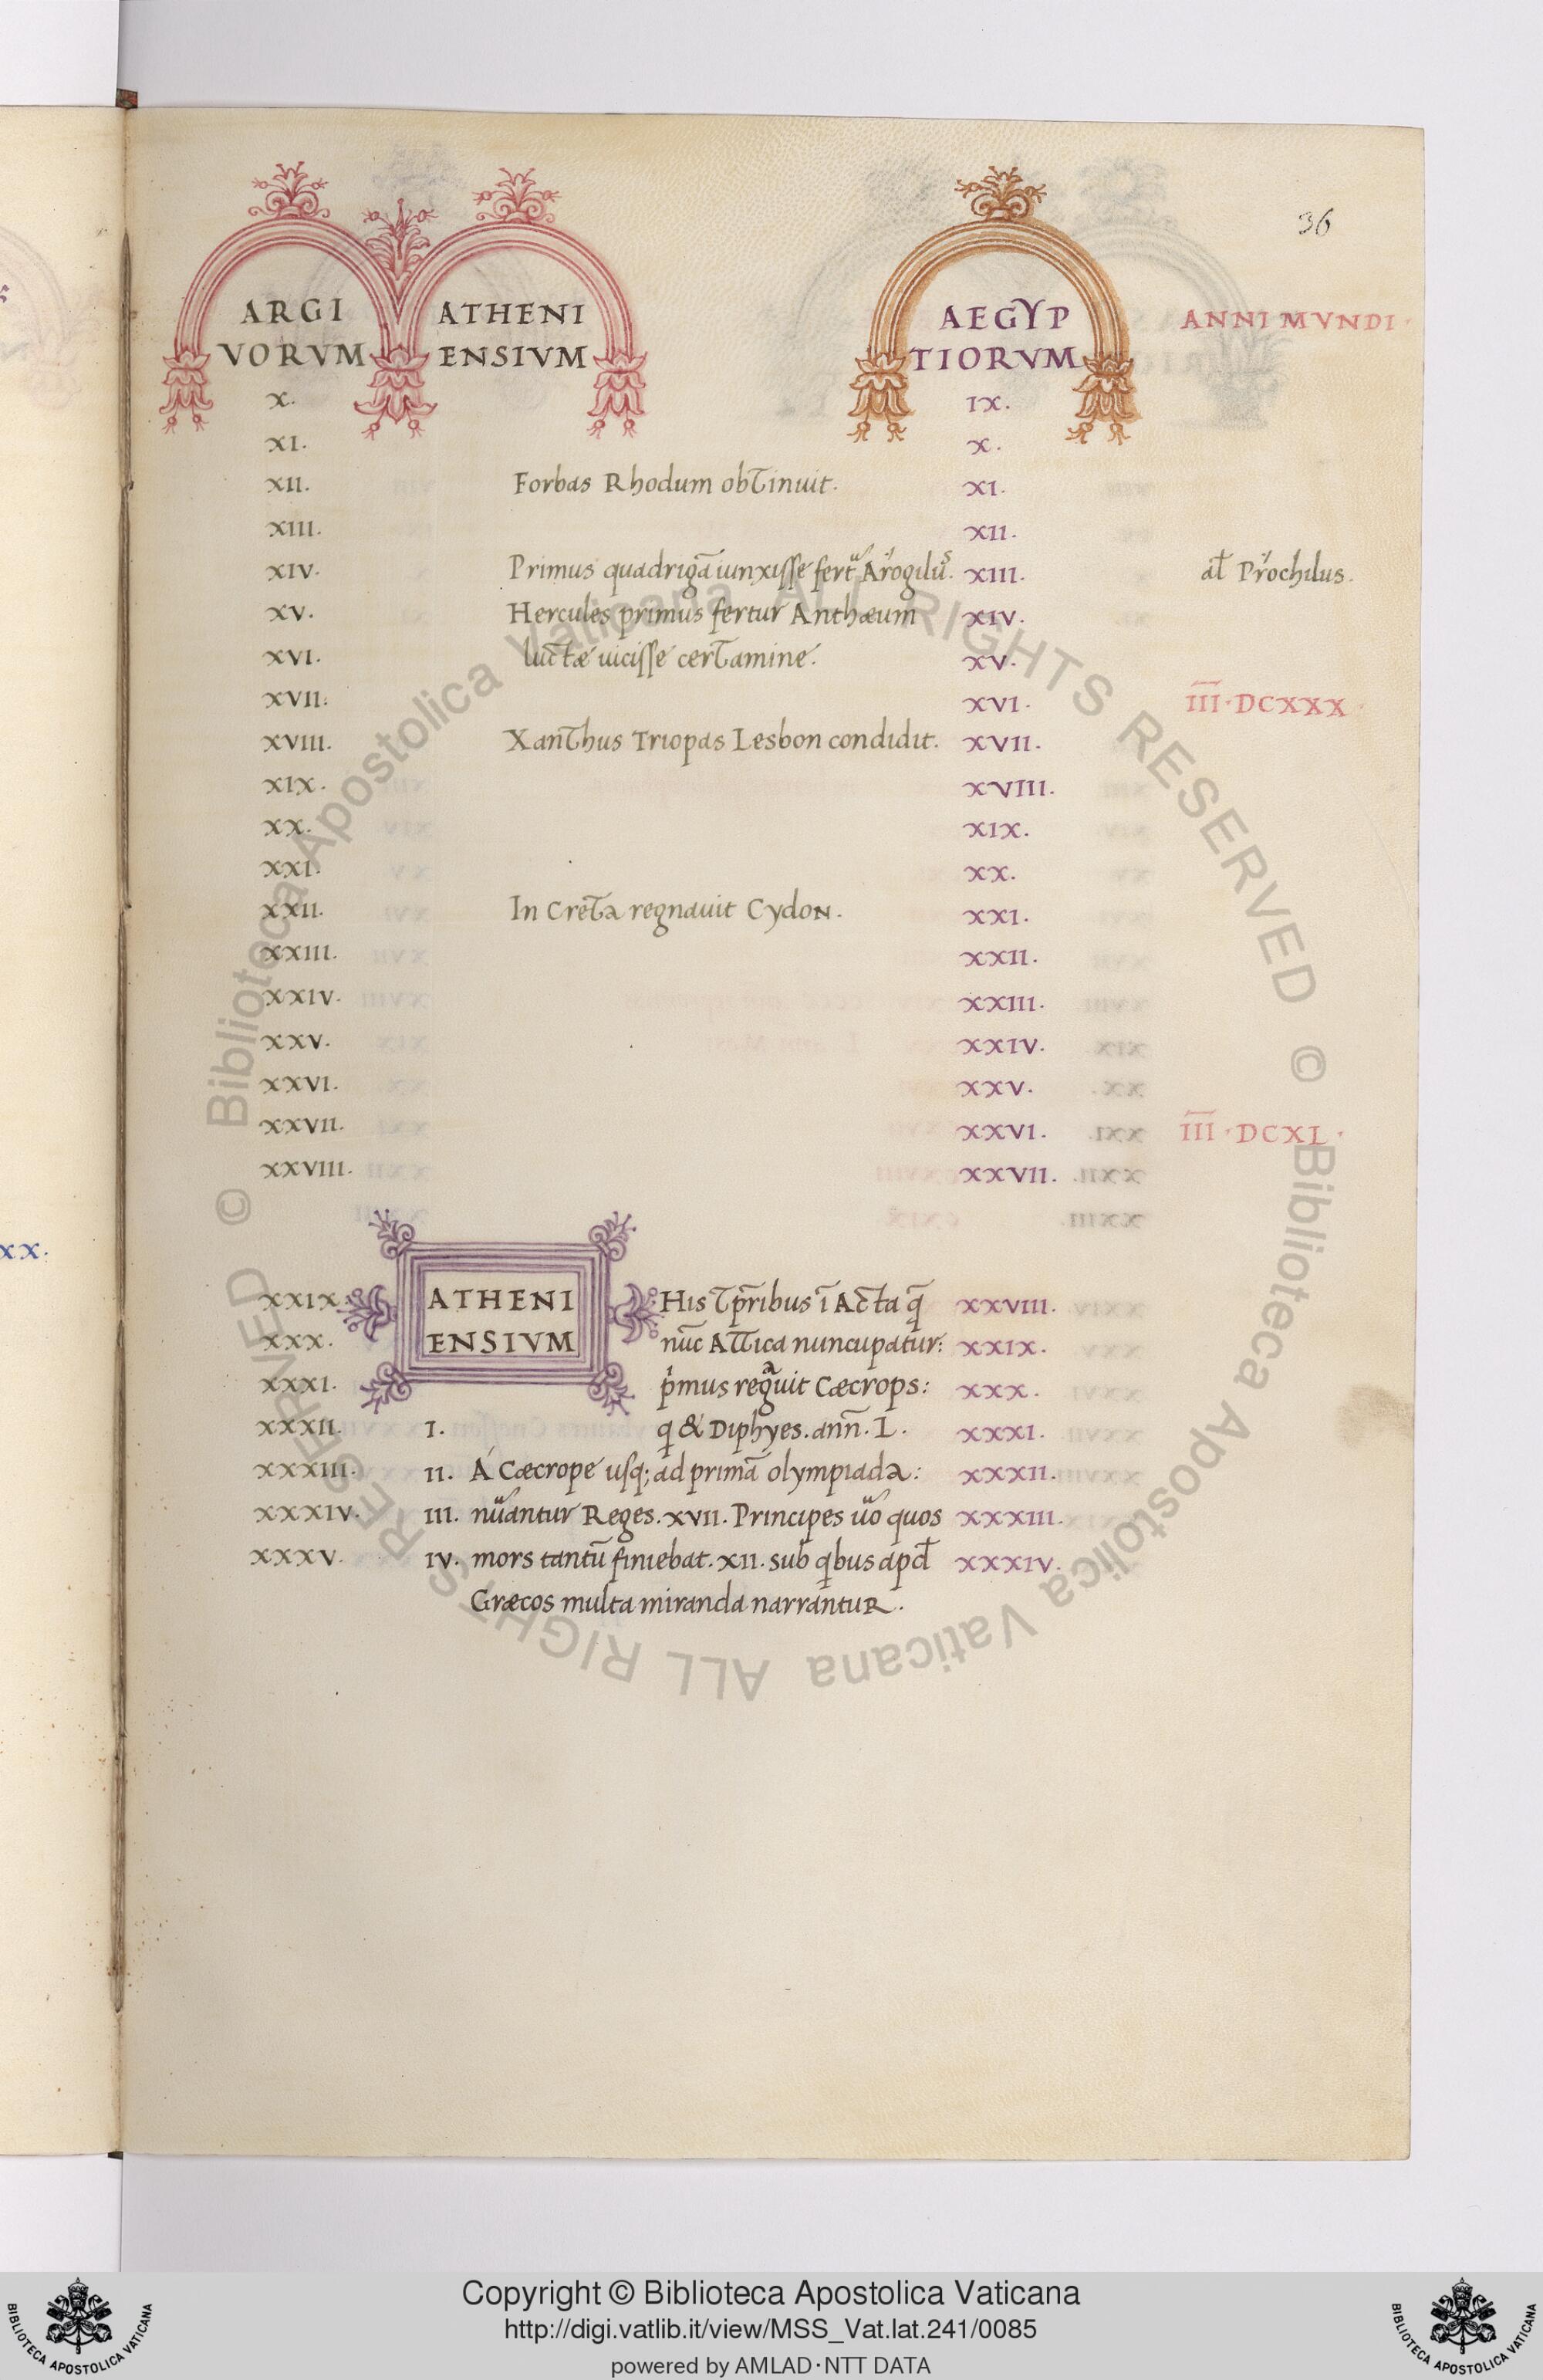 36
ARGI ATHENI AEGYP ANNI MVNDI
VORVM ENSIVM TIORVM
X. IX.
XI. X.
XII. Forbas Rhodum obtinuit. XI.
XIII. XII.
XIV. Primus quadrigā iunxisse fert᷑ Aͥrogilꝰ. XIII. al̃ Pͥrochilus.
XV. Hercules primus fertur Anthæum XIV.
XVI. luctæ uicisse certamine. XV.
XVII. XVI. I̅I̅I̅·DCXXX
XVIII. Xanthus Triopas Lesbon condidit. XVII.
XIX. XVIII.
XX. XIX.
XXI. XX.
XXII. In Creta regnauit Cydon. XXI.
XXIII. XXII.
XXIV. XXIII.
XXV. XXIV.
XXVI. XXV.
XXVII. XXVI. I̅I̅I̅·DCXL·
XXVIII. XXVII.
XXIX. ATHENI His tp̄ribus ī Acta q̄ XXVIII.
XXX. ENSIVM nūc Attica nuncupatur: XXIX.
XXXI. pͥmus regᵃuit Cæcrops: XXX.
XXXII. I. q & Diphyes. anñ. L. XXXI.
XXXIII. II. Á Cæcrope usq; ad primā olympiada: XXXII.
XXXIV. III. nũantur Reges. XVII. Principes ũo quos XXXIII.
XXXV. IV. mors tantū finiebat. XII. sub qbus apđ XXXIV.
Græcos multa miranda narrantur.
© Biblioteca Apostolica Vaticana ALL RIGHTS RESERVED © Biblioteca Apostolica Vaticana ALL RIGHTS RESERVED
BIBLIOTECA APOSTOLICA VATICANA
Copyright © Biblioteca Apostolica Vaticana
http://digi.vatlib.it/view/MSS_Vat.lat.241/0085
powered by AMLAD·NTT DATA
BIBLIOTECA APOSTOLICA VATICANA